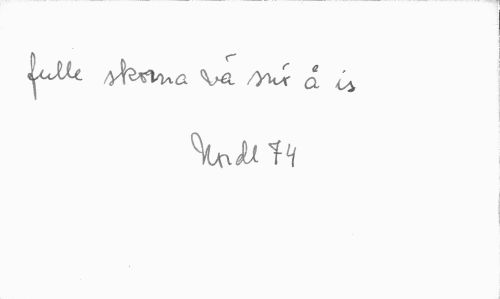 fulle skorna vá snó å is
Nordl 74